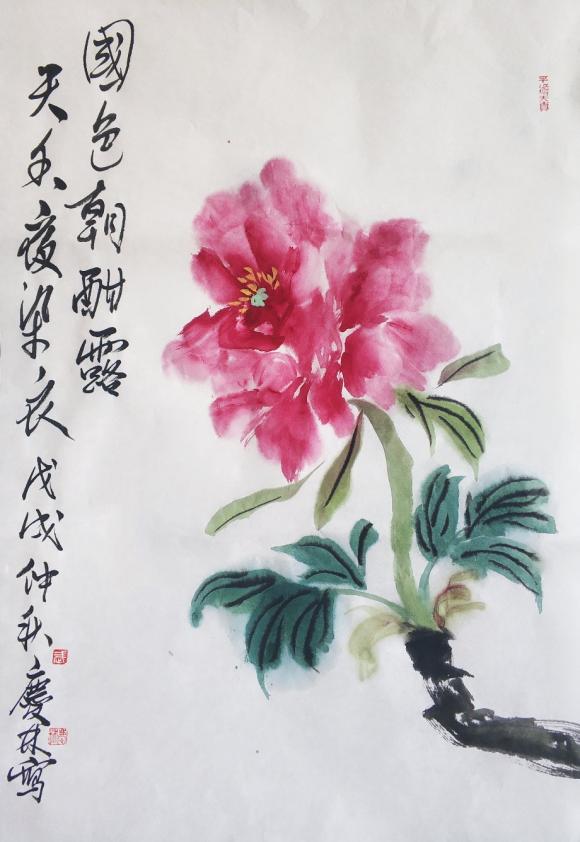 國色朝酣露
天香夜染衣 戊戌仲秋 慶林寫